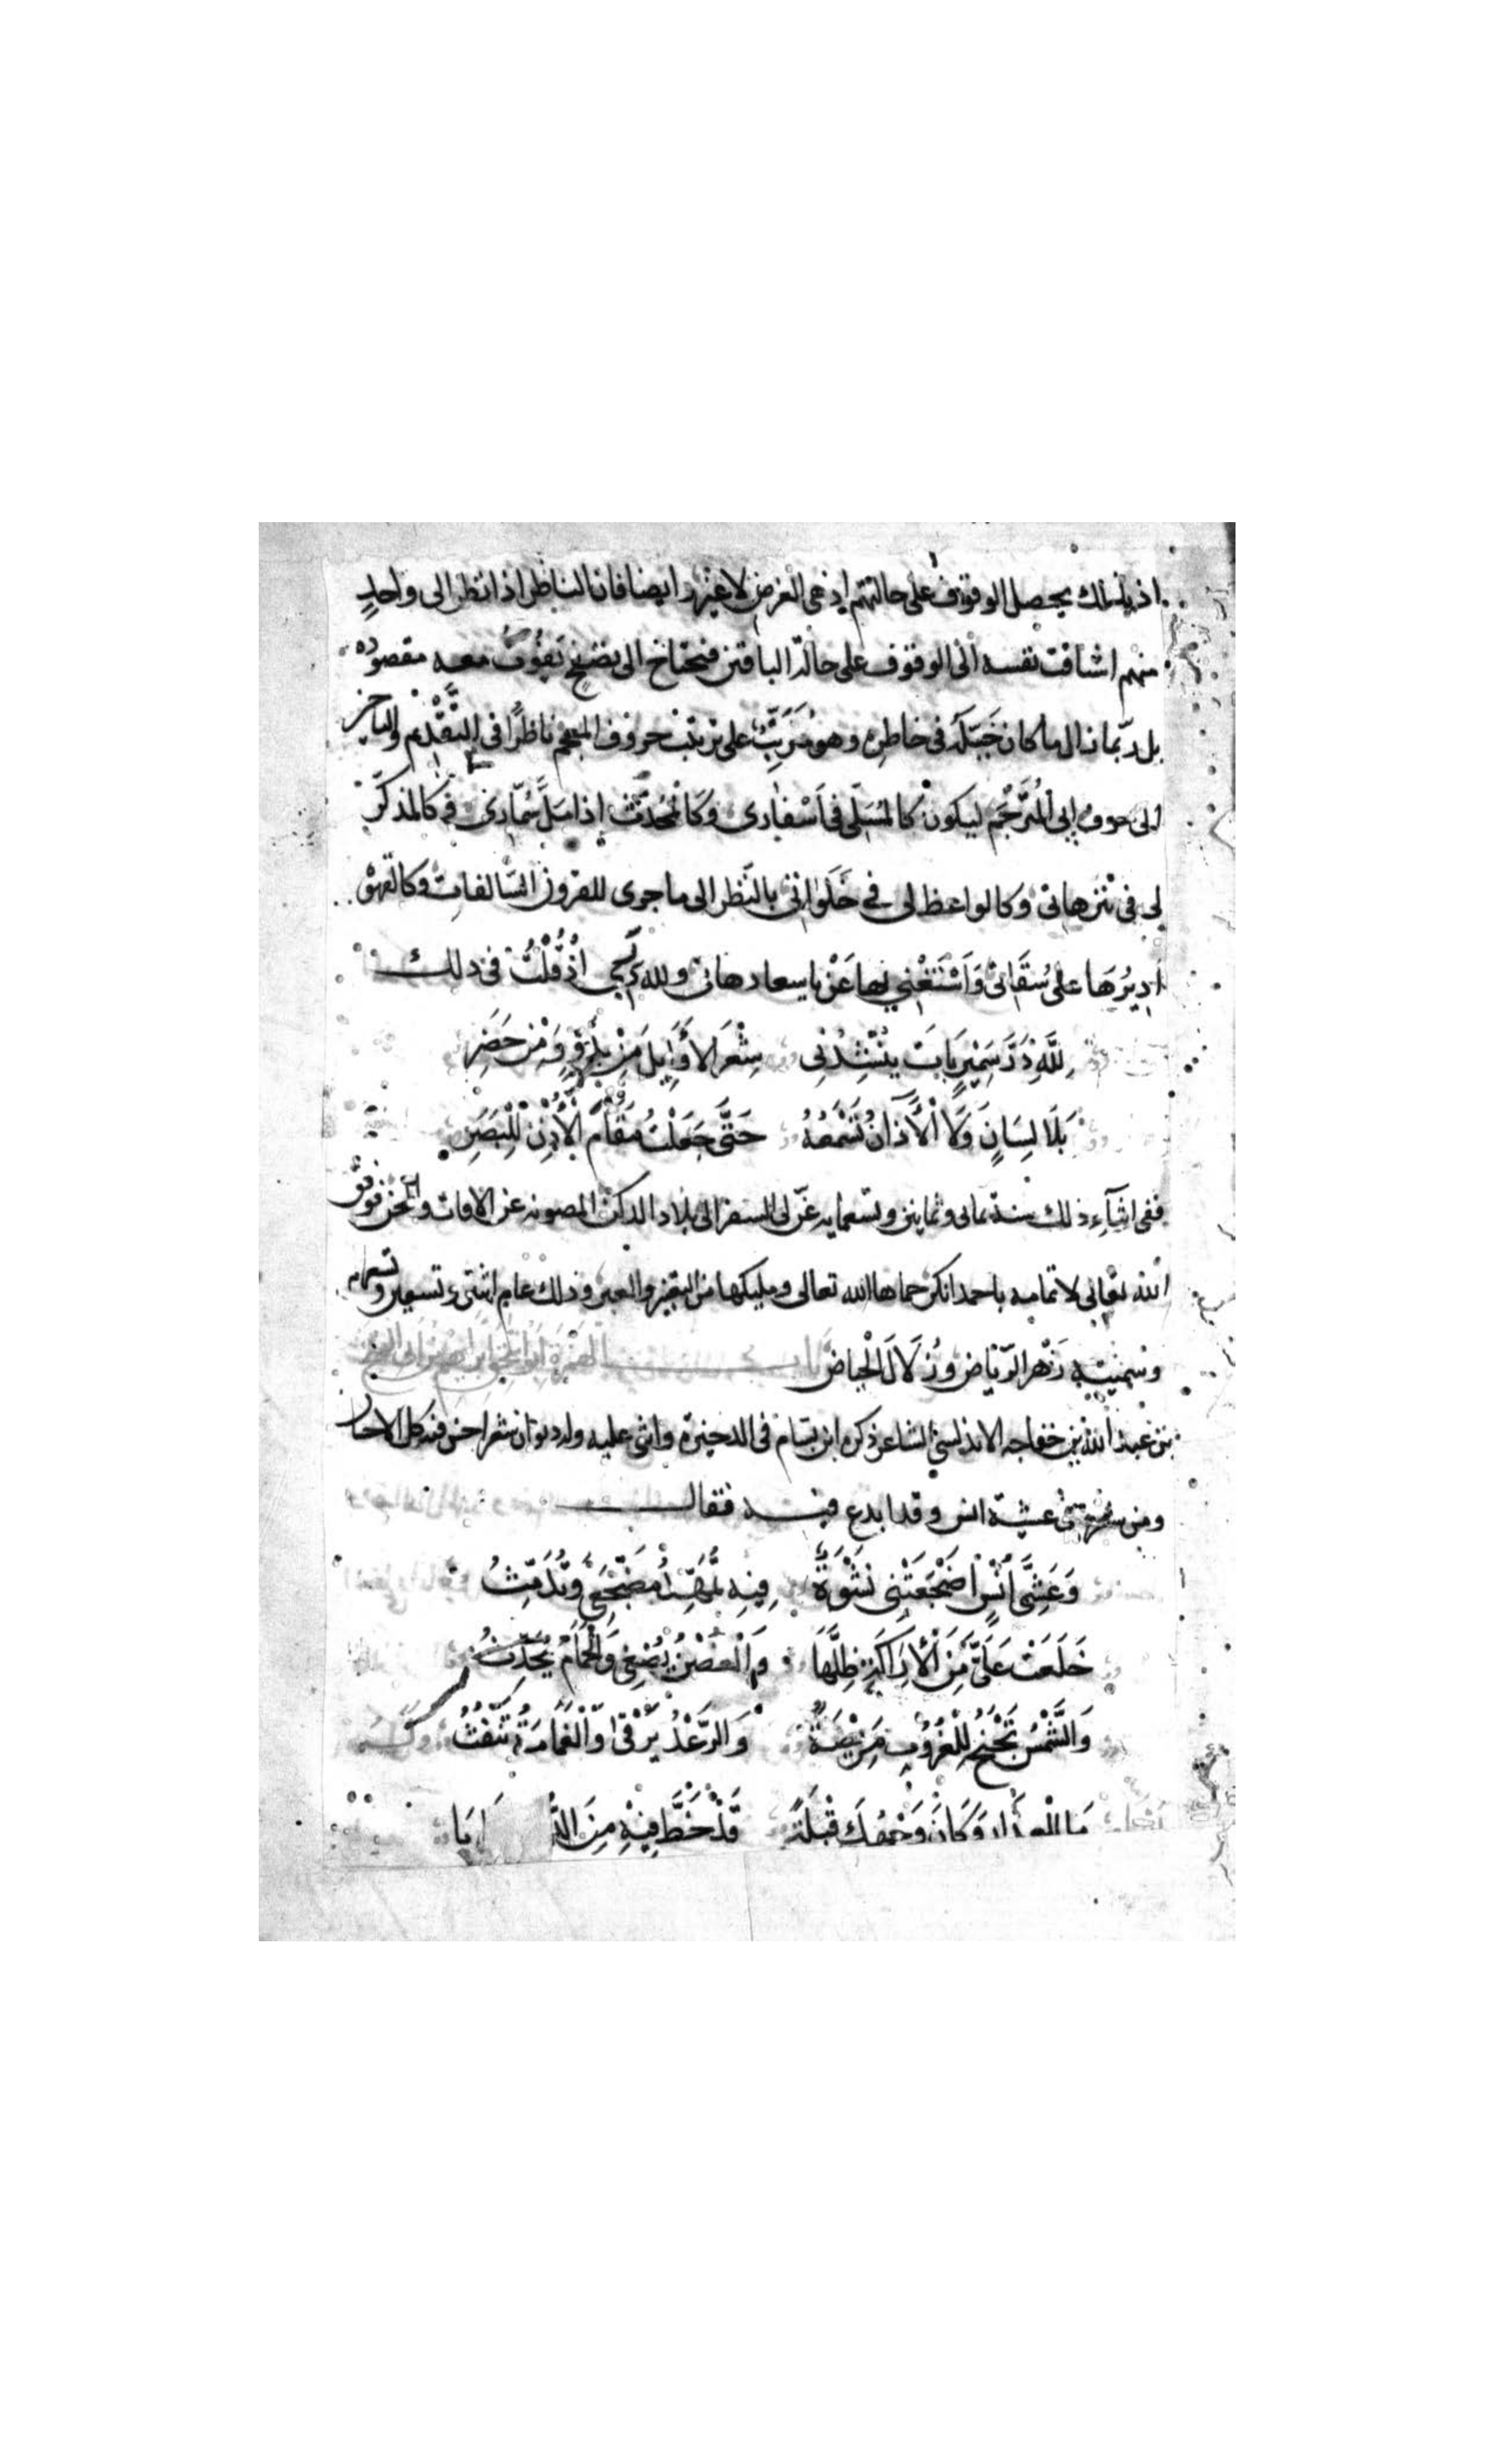 اذ بذلك يحصل الوقوف على حالتهم اذ هى الغرض لا غير وايضا فان الناظر اذا نظر الى واحد
منهم اشتاقت نفسه الى الوقوف على حالة الباقين فيحتاج الى تصفح يفوت معه مقصوده
بل ربما زال ما كان خَيّله فى خاطره وهو مُرَتّب على ترتيب حروف المعجم ناظرًا فى التَّقَدُّم والتاخر
الى حروف المُتَرجَم ليكون كالمُسَلّى فى اَسْفارى وكَالمُحَدّث اذا مَلَّ سُمّارى و كالمذكّر
لى فى تنزهاتى وكالواعظ لى فى خَلَواتى بالنّظر الى ما جرى للقرون السّالفات وكالقهوة
اُدِيرُهَا على سُقَاتى وَاَسْتَغْنِي بها عَنْ ولله اذْ قُلْتُ فى ذلك
لِلّهِ دَرّ سَمِيرٍ بَاتَ يُنْشِدُنِى شِعْرَ الأَوَايِلِ مِنْ بَدْوٍ وَمِنْ حَضَرِ
بِلَا لِسَانٍ وَلَا الْأَذَانُ تَسْمَعُهُ حَتَّى جَعَلْتُ مَقَامَ الْأُذْنِ لِلْبَصَرِ
ففى اثنآء ذلك سنة ثمانى وثمانين وتسعمايه عنّ لى السفر الى بلاد الدكن المصونه عن الافات والمحن فوفق
الله تعالى لاتمامه باحمدانكر حماها الله تعالى ومليكها من الغير وذلك عام اثنتى وتسعين وتسعمايه
وسميته زَهر الرّياض وزُلَالَ الْحِياض بَابُ الهَمْزَة ابو اسحق ابراهيم بن ابى الفتح
بن عبد الله بن خفاجه الاندلسى الشاعر ذكره ابن بسّام فى الذخيرة واثنى عليه وله ديوان شعر احسن فيه كل الاحسان
ومن شعره فى عشية انس وقد ابدع فيه فقال
وَعَشِيَّ اُنْسٍ اَضْجَعَتْنِى نَشْوَةٌ فِيهِ تُمَهِّدُ مَضْجَعِى وتُدَمِّثُ
خَلَعَتْ عَلَىَّ مِنَ الْأَرَاكَةِ ظِلَّهَا وَالْغُصْنُ يُصْغِى وَالْحَمَامُ يُحَدِّثُ
وَالشَّمْسُ تَجْنَحُ لِلْغُرُوبِ مَرِيْضَةً وَالرَّعْدُ يَرْقى وَالْغَمَامَةُ تَنْفُثُ
وَكَانَ وَجْهُكَ قِبْلَةً قَدْ خُطَّ فِيْهِ مِنَ